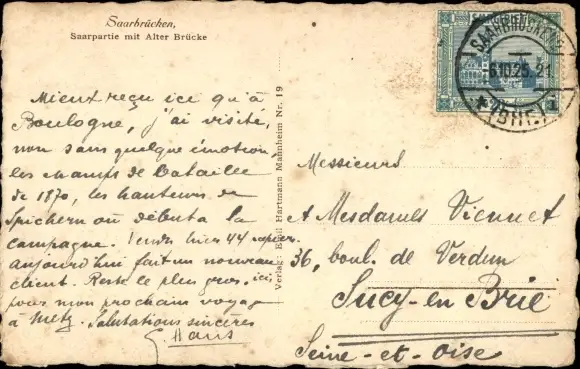 Saarbrücken,
Saarpartie mit Alter Brücke
SAARBRÜCKEN
6.10.25. 21
* (BHF.) 1
Mieux reçu ici qu'à
Boulogne, j'ai visité,
non sans quelque émotion
les champs de bataille
de 1870, les hauteurs de
Spichern où débuta la
campagne. Vendu hier 44
aujourd'hui fait un nouveau
client. Reste le plus gros, ici,
pour mon prochain voyage
à Metz. Salutations sincères
Verlag: Emil Hartmann Mannheim Nr. 19
Messieurs
et Mesdames Viennet
36, boul. de Verdun
Sucy-en Brie
Seine-et-Oise